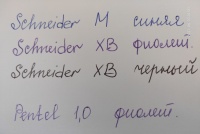 Schneider M синяя
Schneider XB фиолет.
Schneider XB черный
Pentel 1,0 фиолет.